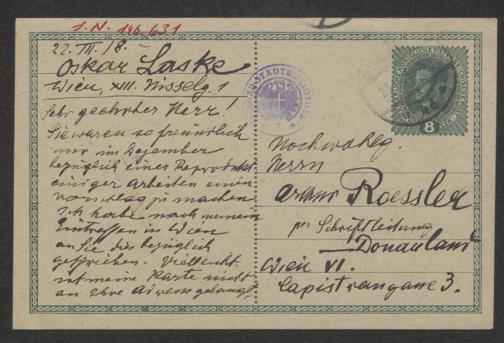 I.N. 146.631
22. III. 18.
Oskar Laske
Wien, XIII. Nisselg. 1
Sehr geehrter Herr!
Sie waren so freundlich
mir im Dezember
bezüglich einer Reproduktion
einiger Arbeiten einen
Vorschlag zu machen
Ich habe nach meinem
Eintreffen in Wien
an Sie diesbezüglich
geschrieben. Vielleicht
ist meine Karte nicht
an Ihre Adresse gelangt,
8
Hochwohlg.
Herrn
Arthur Roessler
per Schriftleitung
Donauland
Wien VI.
Capistrangasse 3.